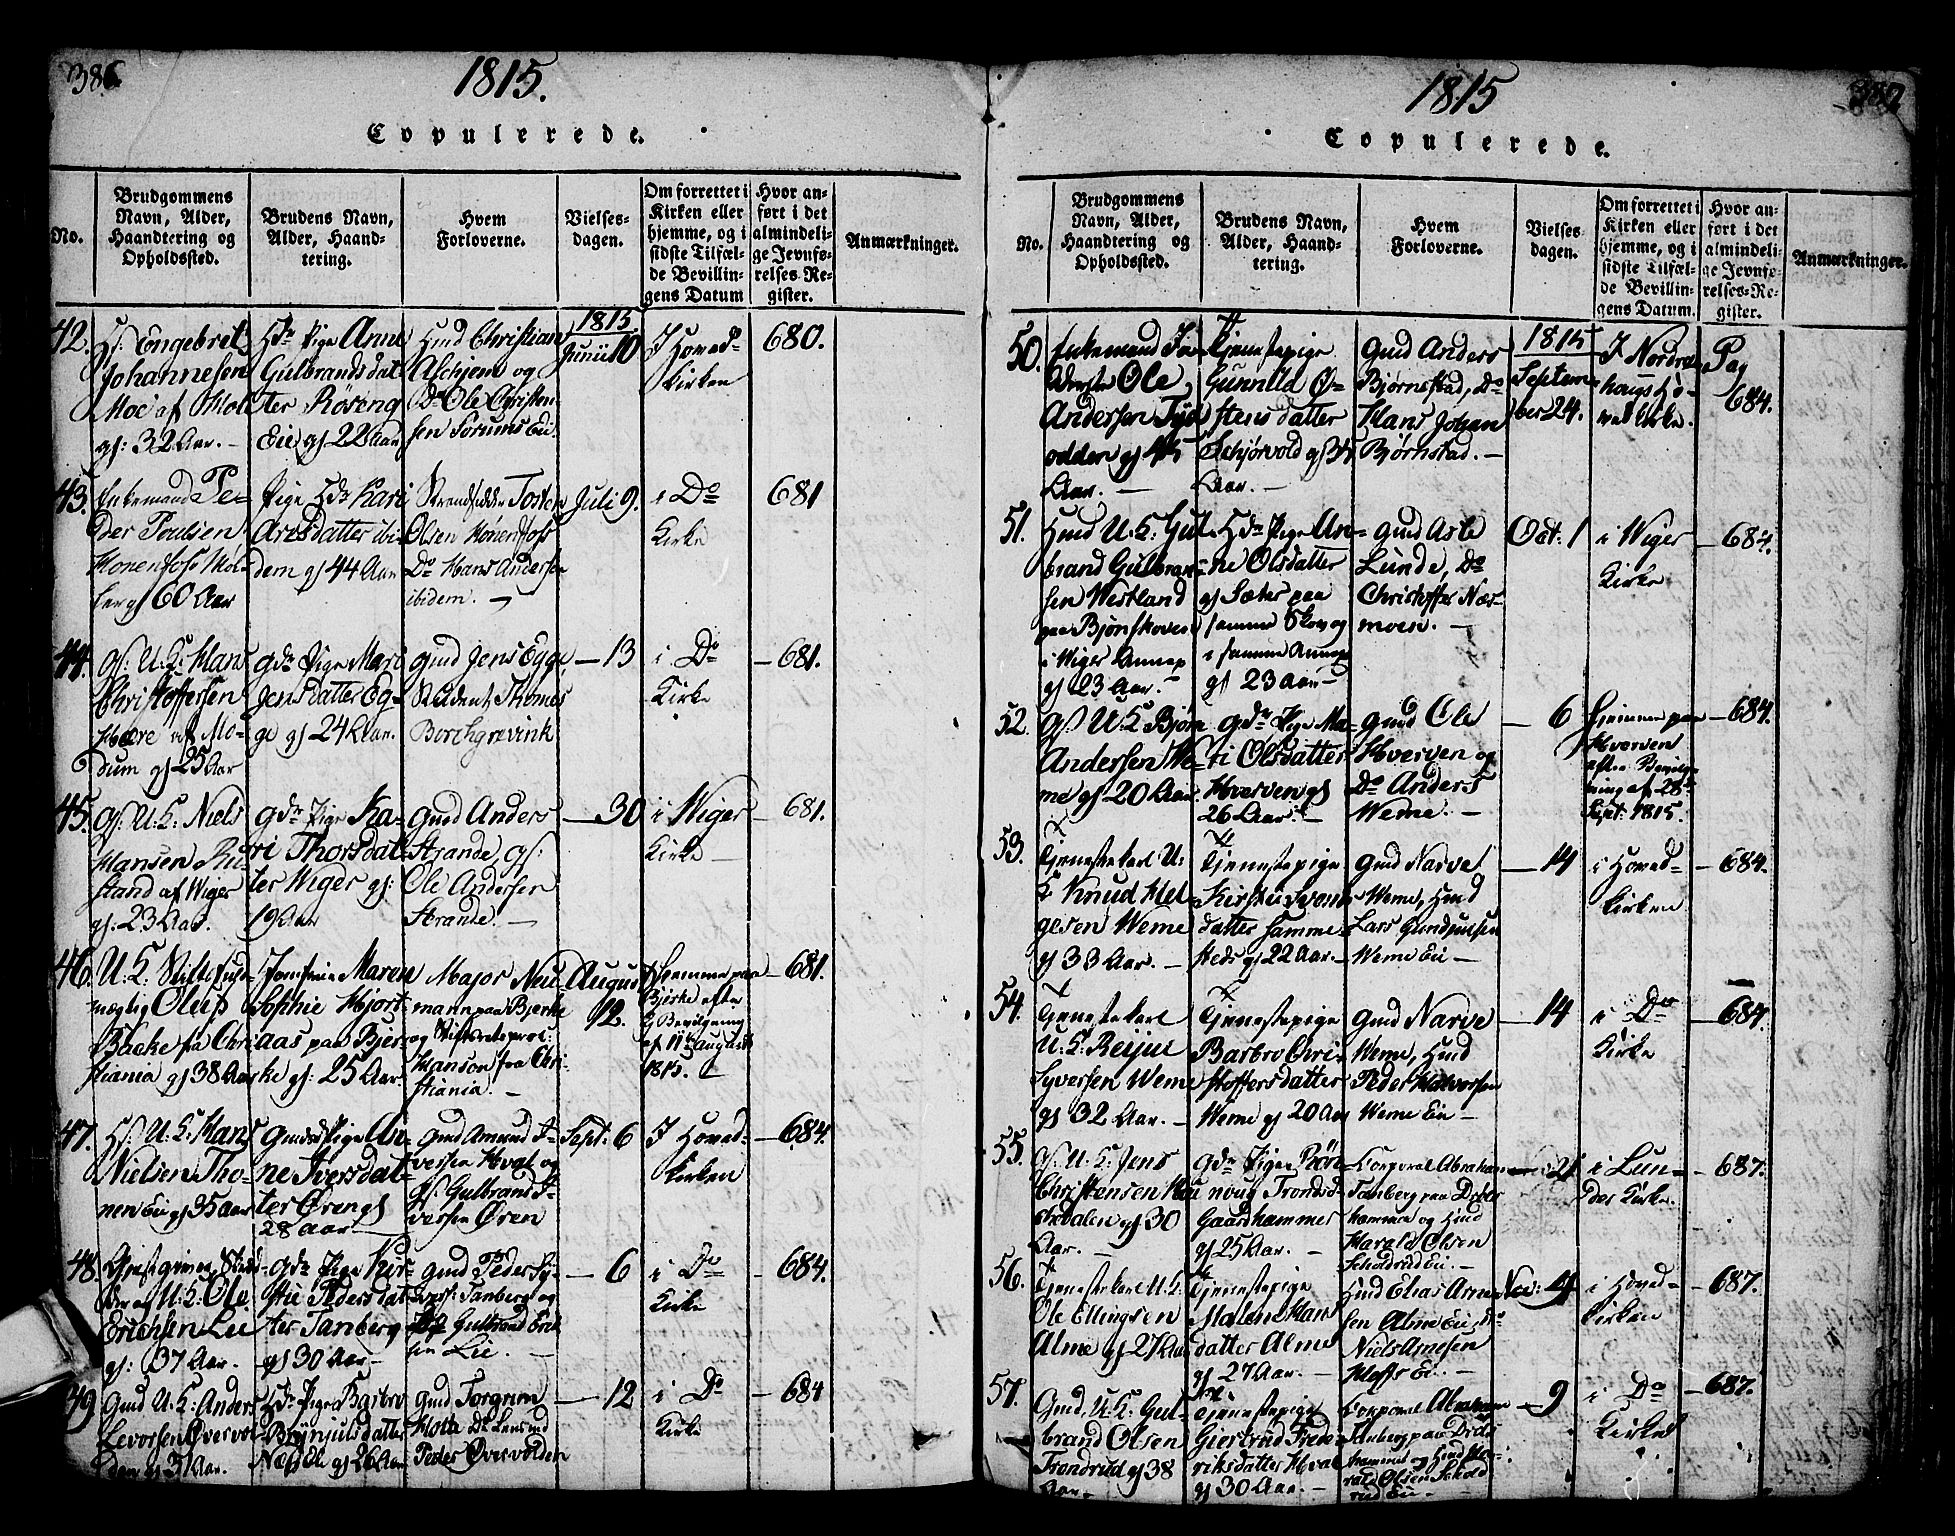 386.
1815.
Copulerede.
No.
Brudgommens
Navn, Alder,
Haandtering og
Opholdssted.
Brudens Navn,
Alder, Haand-
tering.
Hvem
Forloverne.
Vielses-
dagen.
Om forrettet i
Kirken eller
hjemme, og i
sidste Tilfæl-
de Bevillin-
gens Datum
Hvor an-
ført i det
almindeli-
ge Jevnfø-
relses-Re-
gister.
Anmærkninger.
42.
Engebret
Johannesen
Moe af Mo
gl: 32 Aar.
Pige Anne
Gulbrandsdat
ter Røseng
Eie gl 22 Aar
Christian
Aschjem og
Do Ole Christen-
sen Sorums Eii.
1815
Junii 10
I Hoved-
Kirken
680.
43.
Enkemand Pe-
der Poulsen
Honenfoss
60 Aar
Pige Kari
Aresdatter ibi-
dem gl 44 Aar
Strandsidder Tosten
Olsen Hønenfoss
Do Hans Andersen
ibidem.
Juli 9.
i Do
Kirke
681
44.
U.K: Hans
Christoffersen
Hære af Mo-
dum gl 25 Aar
Pige Mari
Jensdatter Eg-
ge gl 24 Aar.
Gmd Jens Egge
Student Thomas
Borchgrevink
13
i Do
Kirke
681.
45.
U.K: Niels
Hansen Ru-
stand af Wiger
gl: 23 Aar.
Pige Ka-
ri Thorsdat-
ter Wiger gl:
19 Aar
Gmd Anders
Strande, gl:
Ole Andersen
Strande.
30
i Wiger
Kirke
681.
46.
U.K. Stiftsfuld-
mægtig Oluf
Backe fra Chri-
stiania gl 38 Aar
Jomfrue Maren
Sophie Hjort-
aas paa Bjer-
ke gl: 25 Aar.
Major Neu-
mann paa Bjerke
og
Hanson fra Chri-
stiania.
August
12.
Hjemme paa
Bjerke efter
Bevilgning
af 11te August
1815.
681.
47.
U.K. Hans
Nielsen Tho-
nen Eii gl 35 Aar
Pige An-
ne Iversdat-
ter Øren gl
28 Aar
Gmd Amund I-
versen Hval og
Gulbrand I-
versen Øren
Sept: 6
I Hoved-
Kirken
684.
48.
U.K: Ole
Erichsen Lie
gl: 37 Aar.
Pige Kir-
stie Pedersdat-
ter Tanberg
gl 30 Aar
Gmd Peder Sy-
vers: Tanberg og
Gulbrand Erik
sen Lie.
6
i Do
Kirke
684.
49
Gmd U.K: Anders
Levorsen Overvol-
den gl 31 Aar.
Pige Barbro
Brynjulsdatter
gl 26 Aar
Gmd Torgrim
Hotte
Peder Overvolden
12
i Do
Kirke
684
387
1815
Copulerede.
No.
Brudgommens
Navn, Alder,
Haandtering og
Opholdssted.
Brudens Navn,
Alder, Haand-
tering.
Hvem
Forloverne.
Vielses-
dagen.
Om forrettet i
Kirken eller
hjemme, og i
sidste Tilfæl-
de Bevillin-
gens Datum.
Hvor an-
ført i det
almindeli-
ge Jevnfø-
relses-Re-
gister.
Anmærkninger.
50.
Enkemand
Ole
Andersen Tyd
odden gl 45
Aar.
Tjenestepige
Gunnild Ø-
stensdatter
Schjørvold gl 34
Aar.
Gmd Anders
Bjørnstad, Do
Hans Johan
Bjørnstad.
1815
Septem-
ber 24.
I Nordre-
hougs Ho-
vedkirke.
Pag
684.
51.
Hmd U.K: Gul-
brand Gulbran-
sen Westland
paa Bjønskoven
i Wiger Annex
gl 23 Aar.
Pige An-
ne Olsdatter
Sæter paa
samme Skov og
i samme Annex
gl 23 Aar
Gmd Asle
Lunde, Do
Christoffer Nær-
moen.
Oct: 1
i Wiger
Kirke
684.
52.
U.K Bjørn
Andersen We-
me gl 20 Aar
Pige Ma-
ri Olsdatter
Hverven gl
26 Aar.
Gmd Ole
Hverven og
Do Anders
Weme.
6
Hjemme paa
Hverven
efter Bevilg-
ning af 28de
Sept. 1815.
684.
53.
Tjenestekarl U.
K Knud Hel-
gesen Weme
gl 33 Aar.
Tjenestepige
Kirsti Svens
datter samme-
steds gl 22 Aar
Gmd Narve
Weme, Hmd
Lars Gundjulsen
Weme Eii
14
i Hoved-
Kirken
684.
54.
Tjenestekarl
U.K: Reijer
Syversen Weme
gl 32 Aar.
Tjenestepige
Barbro Chri-
stoffersdatter
Weme gl 20 Aar
Gmd Narve
Weme, Hmd
Peder Halvorsen
Weme Eii
14
i Do
Kirke
684.
55.
U.K. Jens
Christensen
dalen gl 30
Aar.
Pige Røn-
noug Tronds-
Gaardhammer
gl 25 Aar.
Corporal Abraham
Tanberg paa
hammer og Hmd
Harald Olsen
Scholdrud Eii.
21
i Lun-
der Kirke.
687.
56.
Tjenestekarl U.K:
Ole Ellingsen
Alme gl 27 Aar
Tjenestepige
Malene Hans
datter Alme
gl 27 Aar.
Hmd Elias Arne-
sen Alme Eii, Do
Niels Arnesen
Hoffs Eii.
Nov: 4
i Hoved-
Kirken
687.
57.
Gmd. U.K: Gul-
brand Olsen
Trondrud gl 38
Aar.
Tjenestepige
Giertrud Frede-
riksdatter Hval
gl 30 Aar.
Corporal Abraham
Tanberg paa
hammer og Hmd Ha-
rald Olsen Schold
rud Eii
9
i Do
Kirke
687.